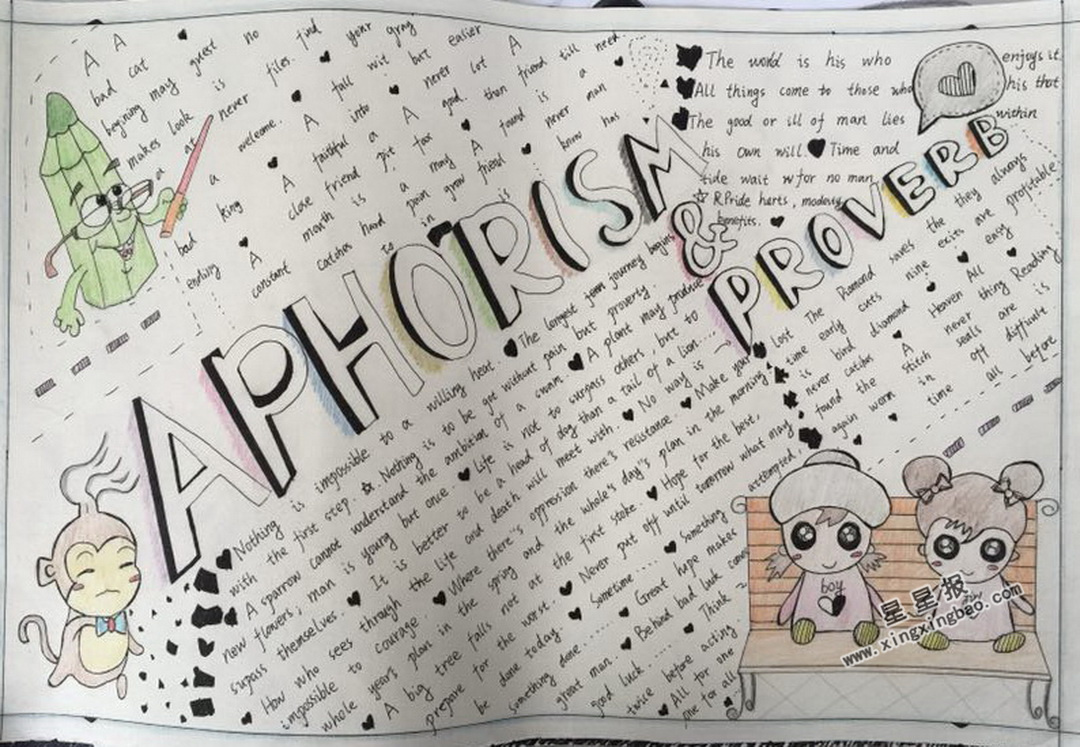 A bad begining makes a bad ending
A cat may look at a king A constant
guest is never welcome. A close month catches
no files. A faithful friend is hard to
find A fall into a pit a pain in
your wit A fox may grow
gray but never good. A friend is
easier lot then found
A friend is never know
till a man has
need
The world is his who enjoys it
All things come to those who his that
The good or ill of man lies within
his own will. Time and
tide wait for no man
R.Pride harts, modeviy
benefits.
APHORISM
&
PROVERB
Nothing is impossible to a willing heat. The longest journey begins
with the first step. Nothing is to be got without pain but proverty.
A sparrow cannot understand the ambition of a swan. A plant may produce
new flowers; man is young but once. Life is not to surpass others, but to
supass themselves. It is better to be a head of dog than a tail of a lion
How who sees through the life and death will meet with No way is
impossible to courage. Where there"s oppression there?s resistance. Make your
whole years plan in the spring and the whole's day"s plan in the morning
A big tree falls not at the first stoke. Hope for the best,
prepare for the worst. Never put off until tomorrow what may
be done today. Sometime attempted,
something done. Great hope makes Something
great man. Behind bad luck comes
good luck Think
twice before acting
All for one
one for all
lost time is never found again
The early bird catches the worn
Diamond cuts diamond A stitch in time
saves nine Heaven never seals off all
the exits All thing are diffiunt before
they are easy
always profitable
Reading is
boy
星星报
www.xingxingbao.com